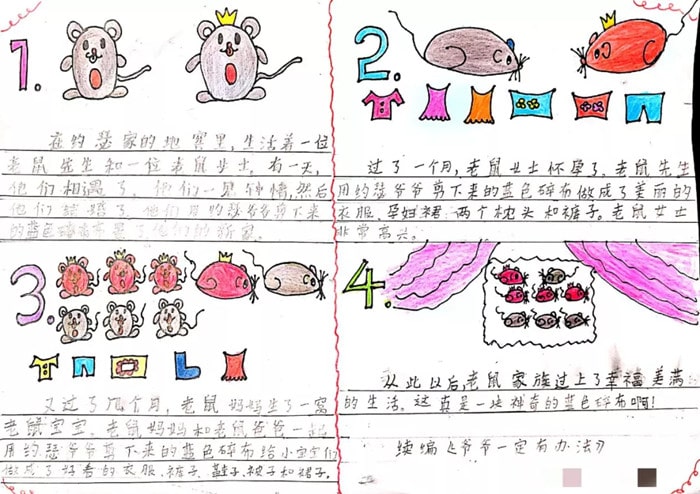 1.
在约瑟家的地窖里,生活着一位
老鼠先生和一位老鼠女士。有一天,
他们相遇了,他们一见钟情,然后
他们结婚了。他们用约瑟爷爷剪下来
的蓝色碎布
2.
过了一个月,老鼠女士怀孕了。老鼠先生
用约瑟爷爷剪下来的蓝色碎布做成了美丽的
衣服、孕妇裙、两个枕头和裤子。老鼠女士
非常高兴。
3.
又过了几个月,老鼠妈妈生了一窝
老鼠宝宝。老鼠妈妈和老鼠爸爸一起
用约瑟爷爷剪下来的蓝色碎布给小宝宝们
做成了好看的衣服、裤子、鞋子、被子和裙子。
4.
从此以后,老鼠家族过上了幸福、美满
的生活。这真是一块神奇的蓝色碎布啊!
续编《爷爷一定有办法》